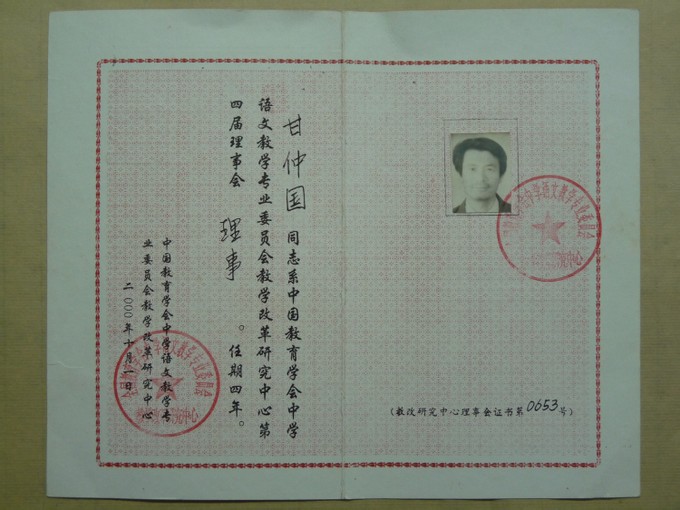 甘仲国 同志系中国教育学会中学
语文教学专业委员会教学改革研究中心第
四届理事会 理事 。任期四年。
中国教育学会中学语文教学专
业委员会教学改革研究中心
二000年十月一日
(教改研究中心理事会证书第0653号)